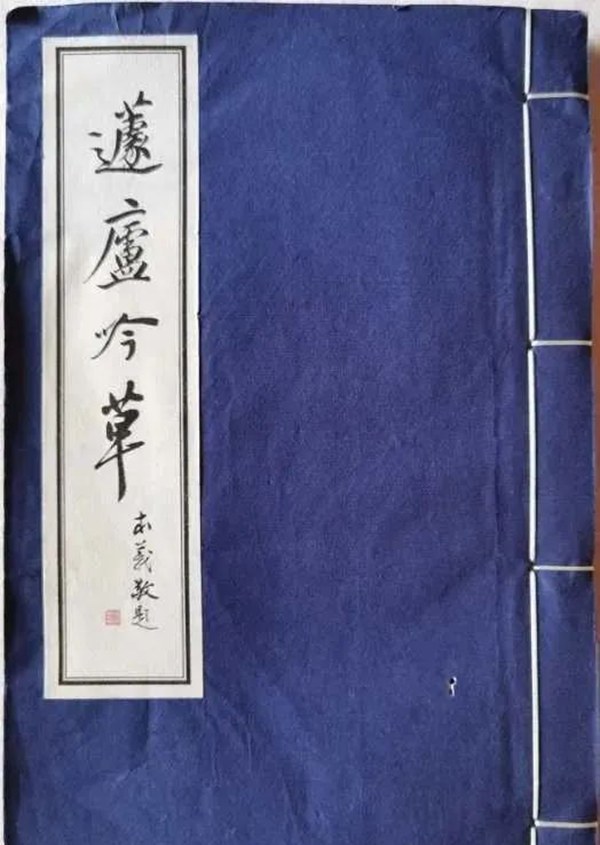 蘧廬吟草
本義敬題